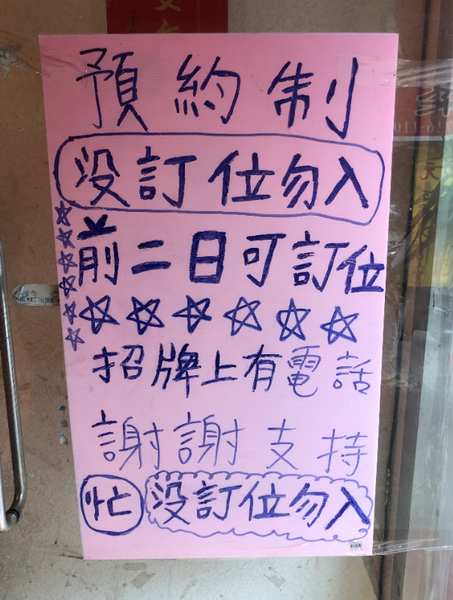 預約制
没訂位勿入
前二日可訂位
招牌上有電話
謝謝支持
忙 没訂位勿入